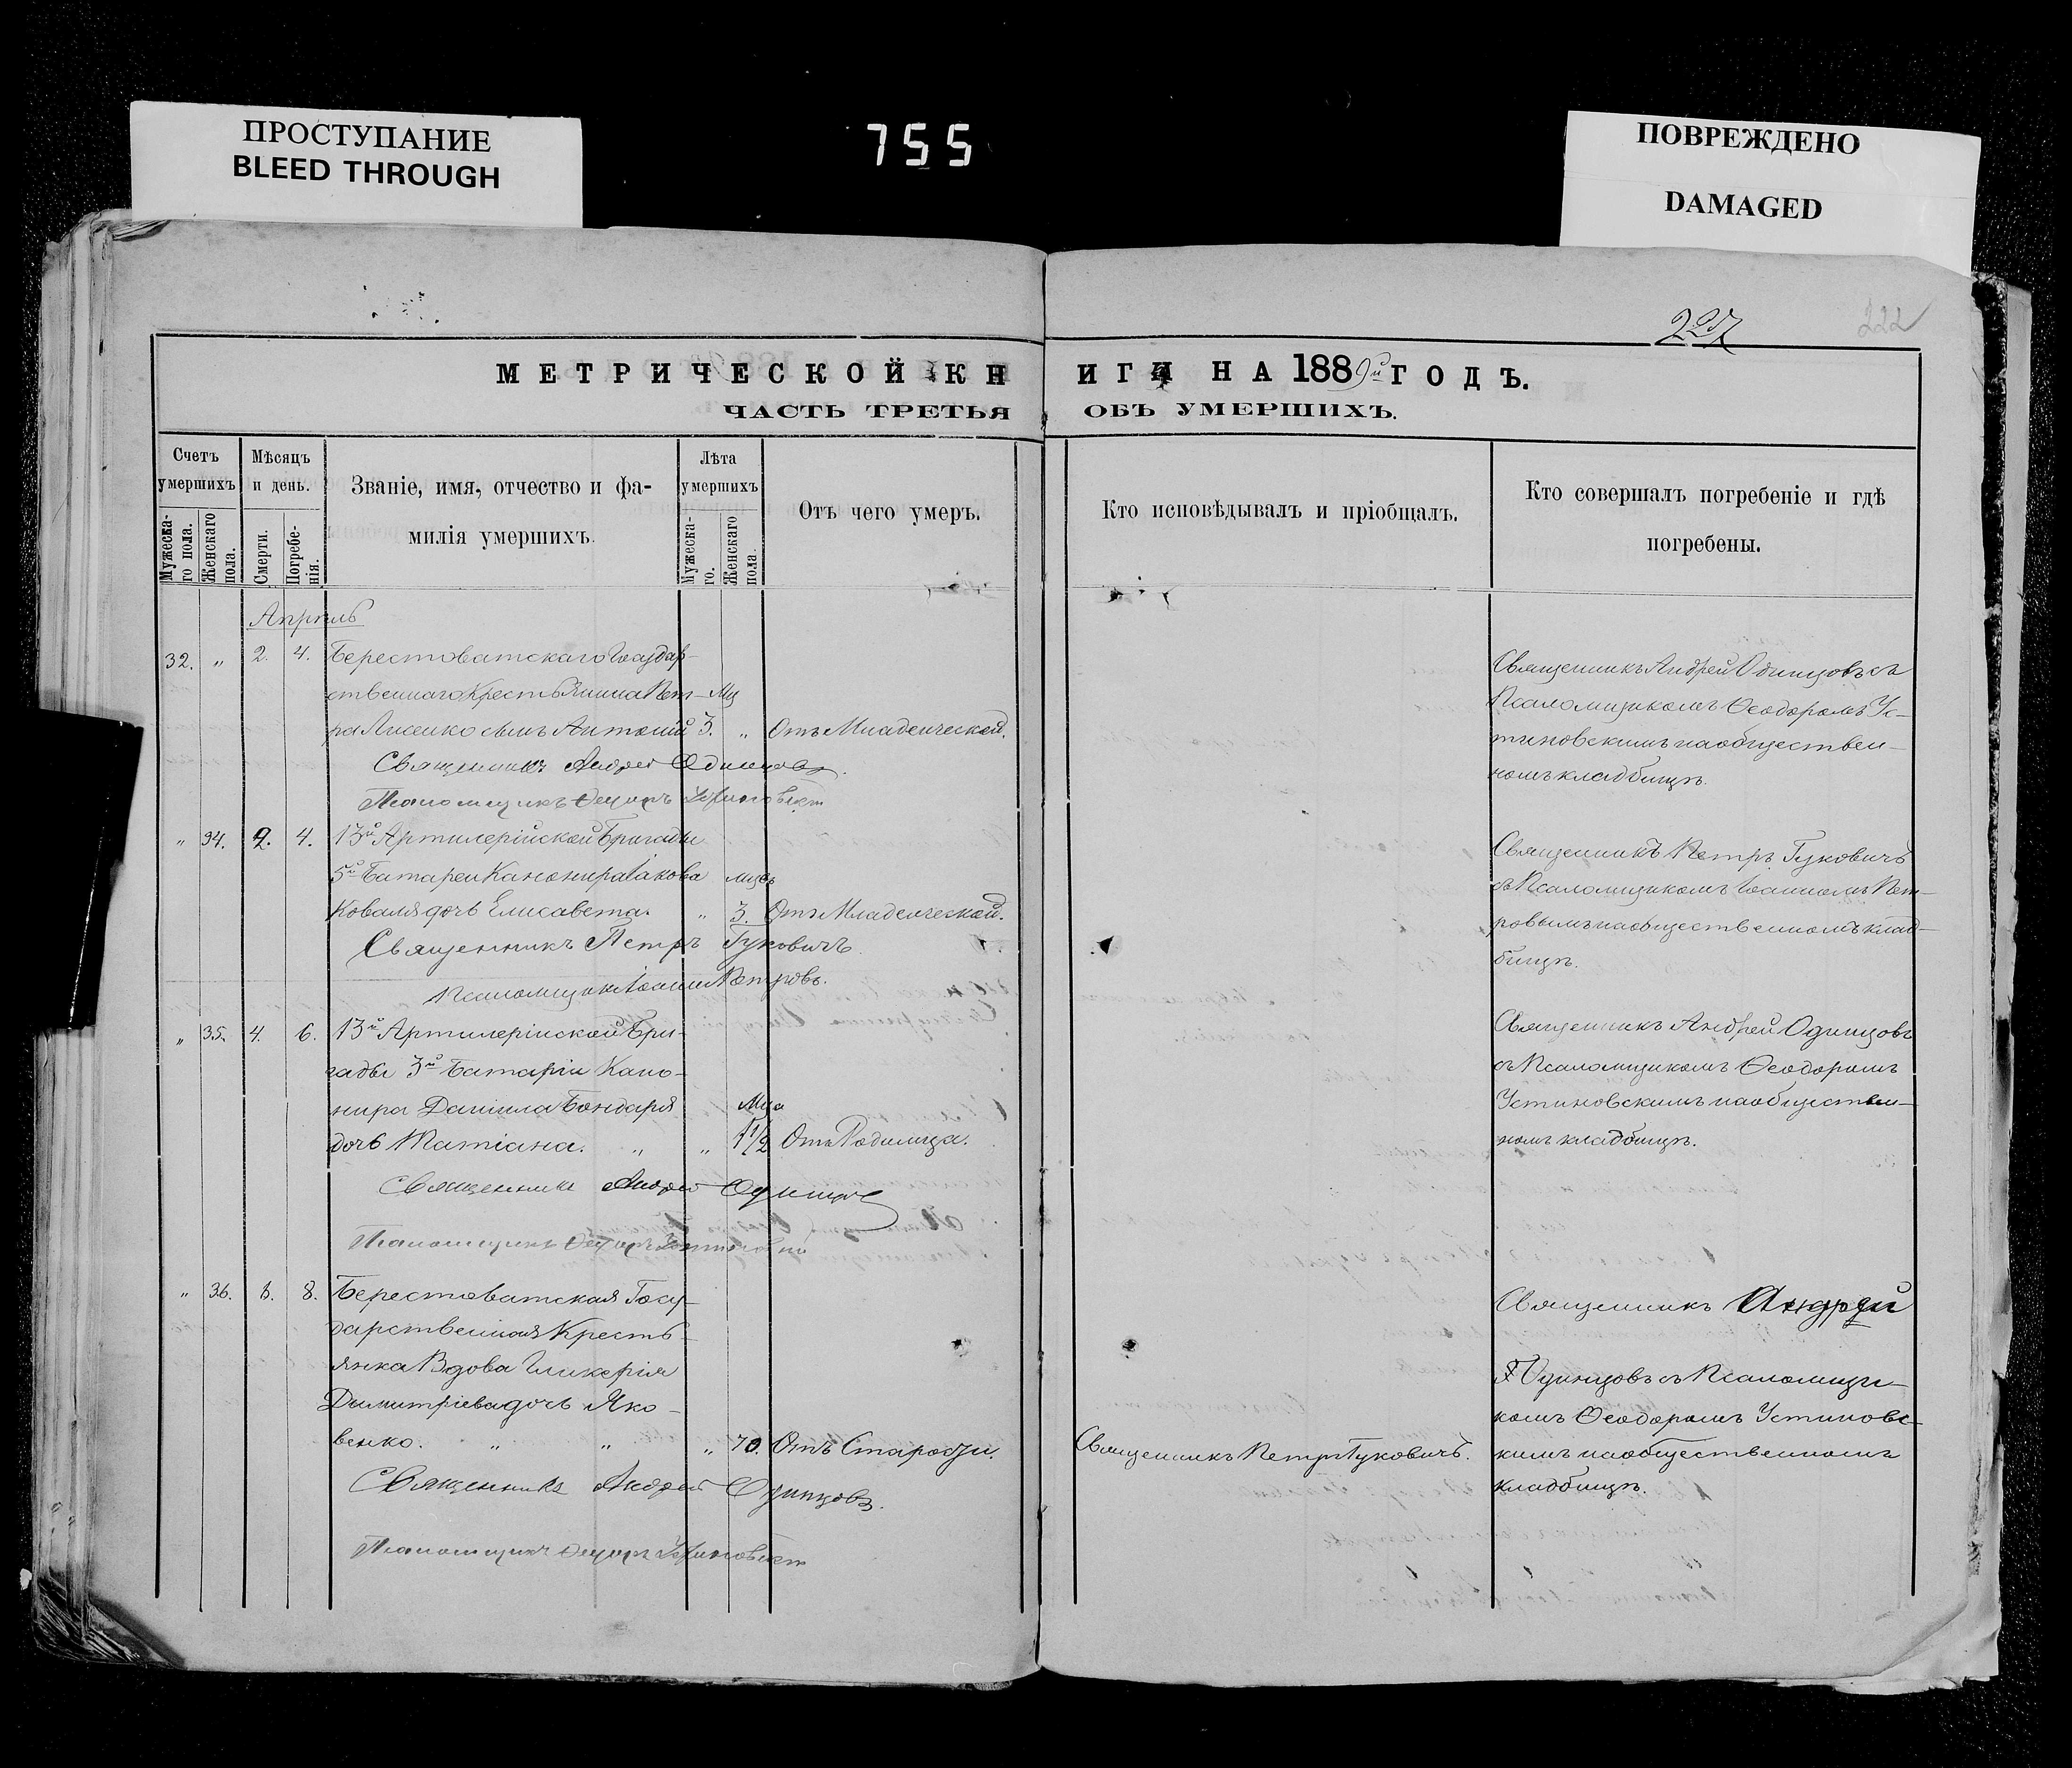 ПРОСТУПАНИЕ
BLEED THROUGH
755
ПОВРЕЖДЕНО
DAMAGED
222
МЕТРИЧЕСКОЙ КНИГИ НА 1889й ГОДЪ.
ЧАСТЬ ТРЕТЬЯ ОБЪ УМЕРШИХЪ.
Счетъ умершихъ
Мужеска-го пола.
Женскаго пола.
Мѣсяцъ и день.
Смерти.
Погребе-нія.
Званіе, имя, отчество и фа-
милія умершихъ.
Лѣта умершихъ
Мужеска-го.
Женскаго пола.
Отъ чего умеръ.
Кто исповѣдывалъ и пріобщалъ.
Кто совершалъ погребеніе и гдѣ
погребены.
Апрѣль
32. " 2. 4. Берестоватскаго Государ-
ственнаго Крестьянина Пет- Мц
ра Лисенко сынъ Антоній 3. " Отъ Младенческой.
Священникъ Андрей Одинцовъ.
Псаломщикъ Ѳеодоръ Устиновскій
Священникъ Андрей Одинцовъ съ
Псаломщикомъ Ѳеодоромъ Ус-
тиновскимъ на обществен-
номъ кладбищѣ.
" 34. 2. 4. 13й Артилерійской Бригады
5й Батареи Канонира Іакова мцъ
Коваля дочь Елисавета. " 3. Отъ Младенческой.
Священникъ Петръ Гуковичъ.
Псаломщикъ Іоаннъ Петровъ.
Священникъ Петръ Гуковичъ
съ Псаломщикомъ Іоанномъ Пет-
ровымъ на общественномъ клад-
бищѣ.
" 35. 4. 6. 13й Артилерійской Бри-
гады 3й Батаріи Кано-
нира Даніила Бондаря Мца
дочь Татіана. " " 1 1/2 Отъ Родимца.
Священникъ Андрей Одинцовъ
Псаломщикъ Ѳеодоръ Устиновскій
Священникъ Андрей Одинцовъ
съ Псаломщикомъ Ѳеодоромъ
Устиновскимъ на обществен-
номъ кладбищѣ.
" 36. 8. Берестоватская Госу-
дарственная Кресть-
янка Вдова Гликерія
Димитріева дочь Яко-
венко. " " " 70. Отъ Старости.
Священникъ Андрей Одинцовъ.
Псаломщикъ Ѳеодоръ Устиновскій
Священникъ Петръ Гуковичъ.
Священникъ Андрей
Одинцовъ съ Псаломщи-
комъ Ѳеодоромъ Устиновс-
кимъ на общественномъ
кладбищѣ.